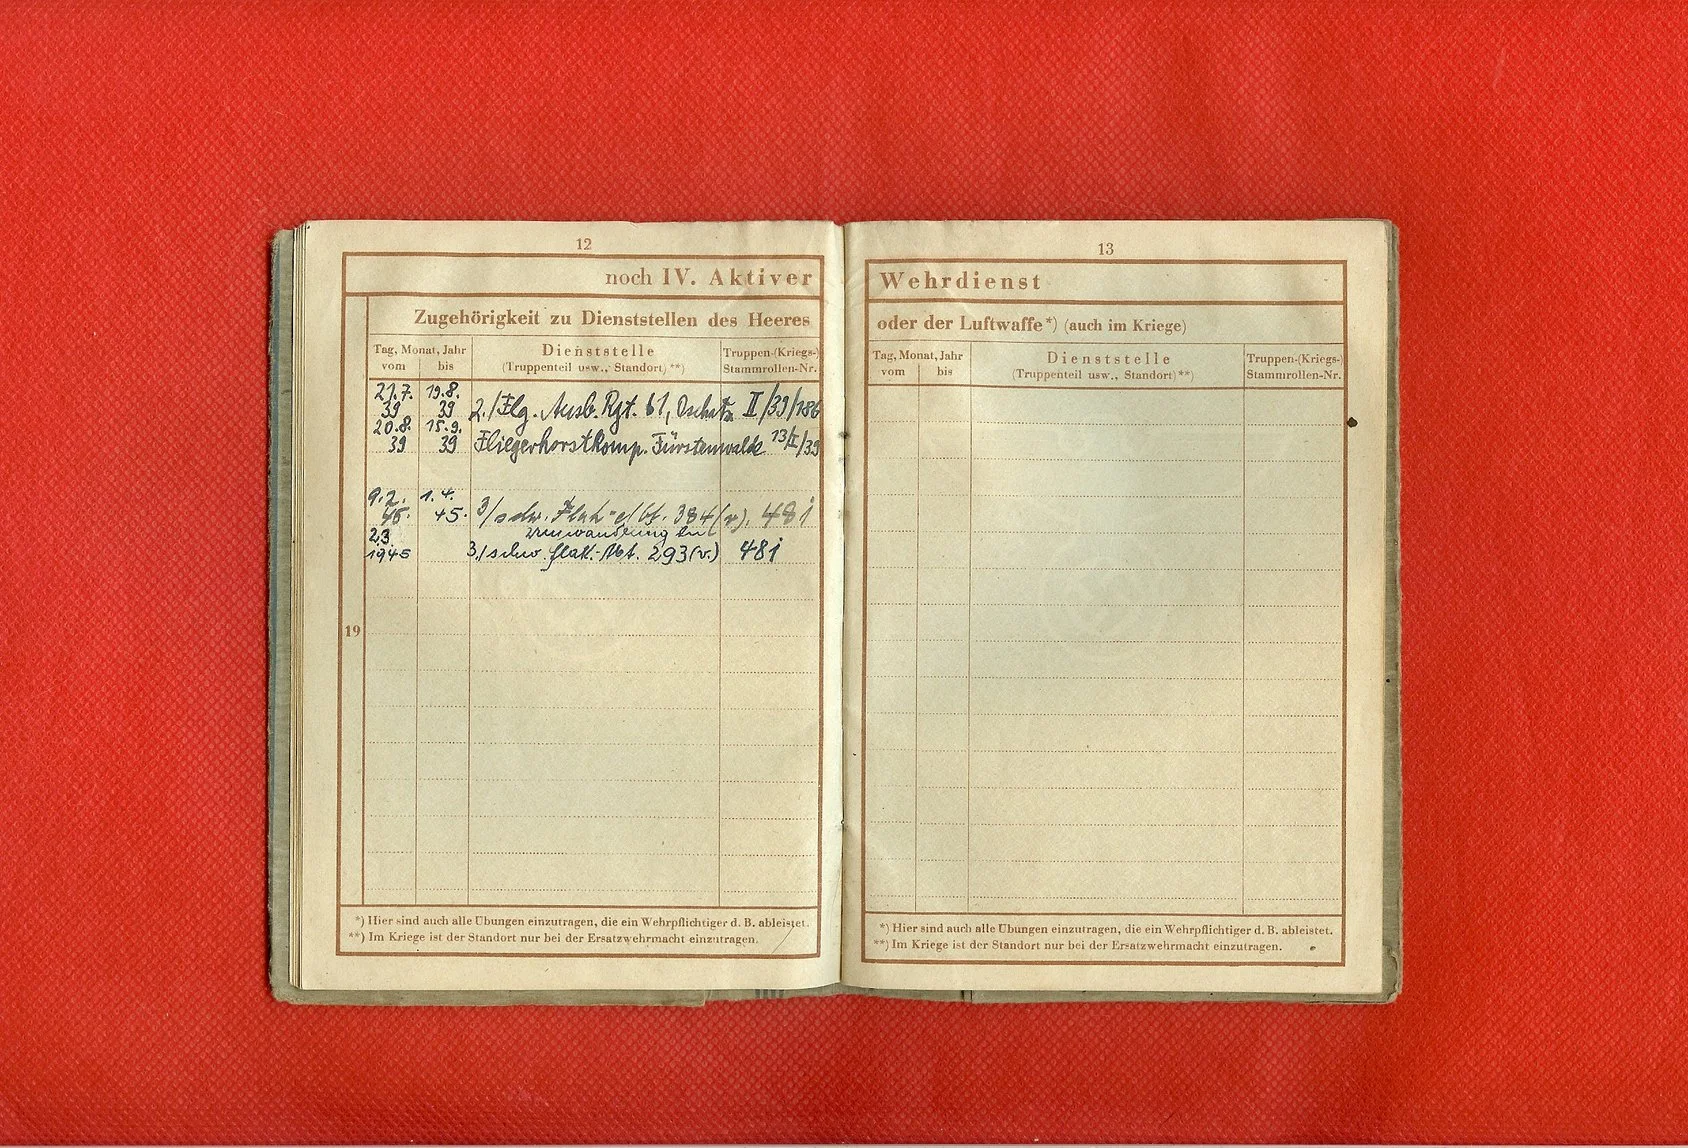 12
noch IV. Aktiver
Zugehörigkeit zu Dienststellen des Heeres
Tag, Monat, Jahr
vom bis
Dienststelle
(Truppenteil usw., Standort) **)
Truppen-(Kriegs-)
Stammrollen-Nr.
21.7. 19.8.
39 39 2./Flg. Ausb. Rgt. 61, Oschatz II/39/186
20.8. 15.9.
39 39 Fliegerhorstkomp. Fürstenwalde 13/I/39
9.2. 1.4.
45. 45. 3/schw. Flak- 384(v), 481
Umwandlung in
2.3.
1945 3./schw. Flak.-Abt. 293(v.) 481
19
*) Hier sind auch alle Übungen einzutragen, die ein Wehrpflichtiger d. B. ableistet.
**) Im Kriege ist der Standort nur bei der Ersatzwehrmacht einzutragen.
13
Wehrdienst
oder der Luftwaffe*) (auch im Kriege)
Tag, Monat, Jahr
vom bis
Dienststelle
(Truppenteil usw., Standort) **)
Truppen-(Kriegs-)
Stammrollen-Nr.
*) Hier sind auch alle Übungen einzutragen, die ein Wehrpflichtiger d. B. ableistet.
**) Im Kriege ist der Standort nur bei der Ersatzwehrmacht einzutragen.